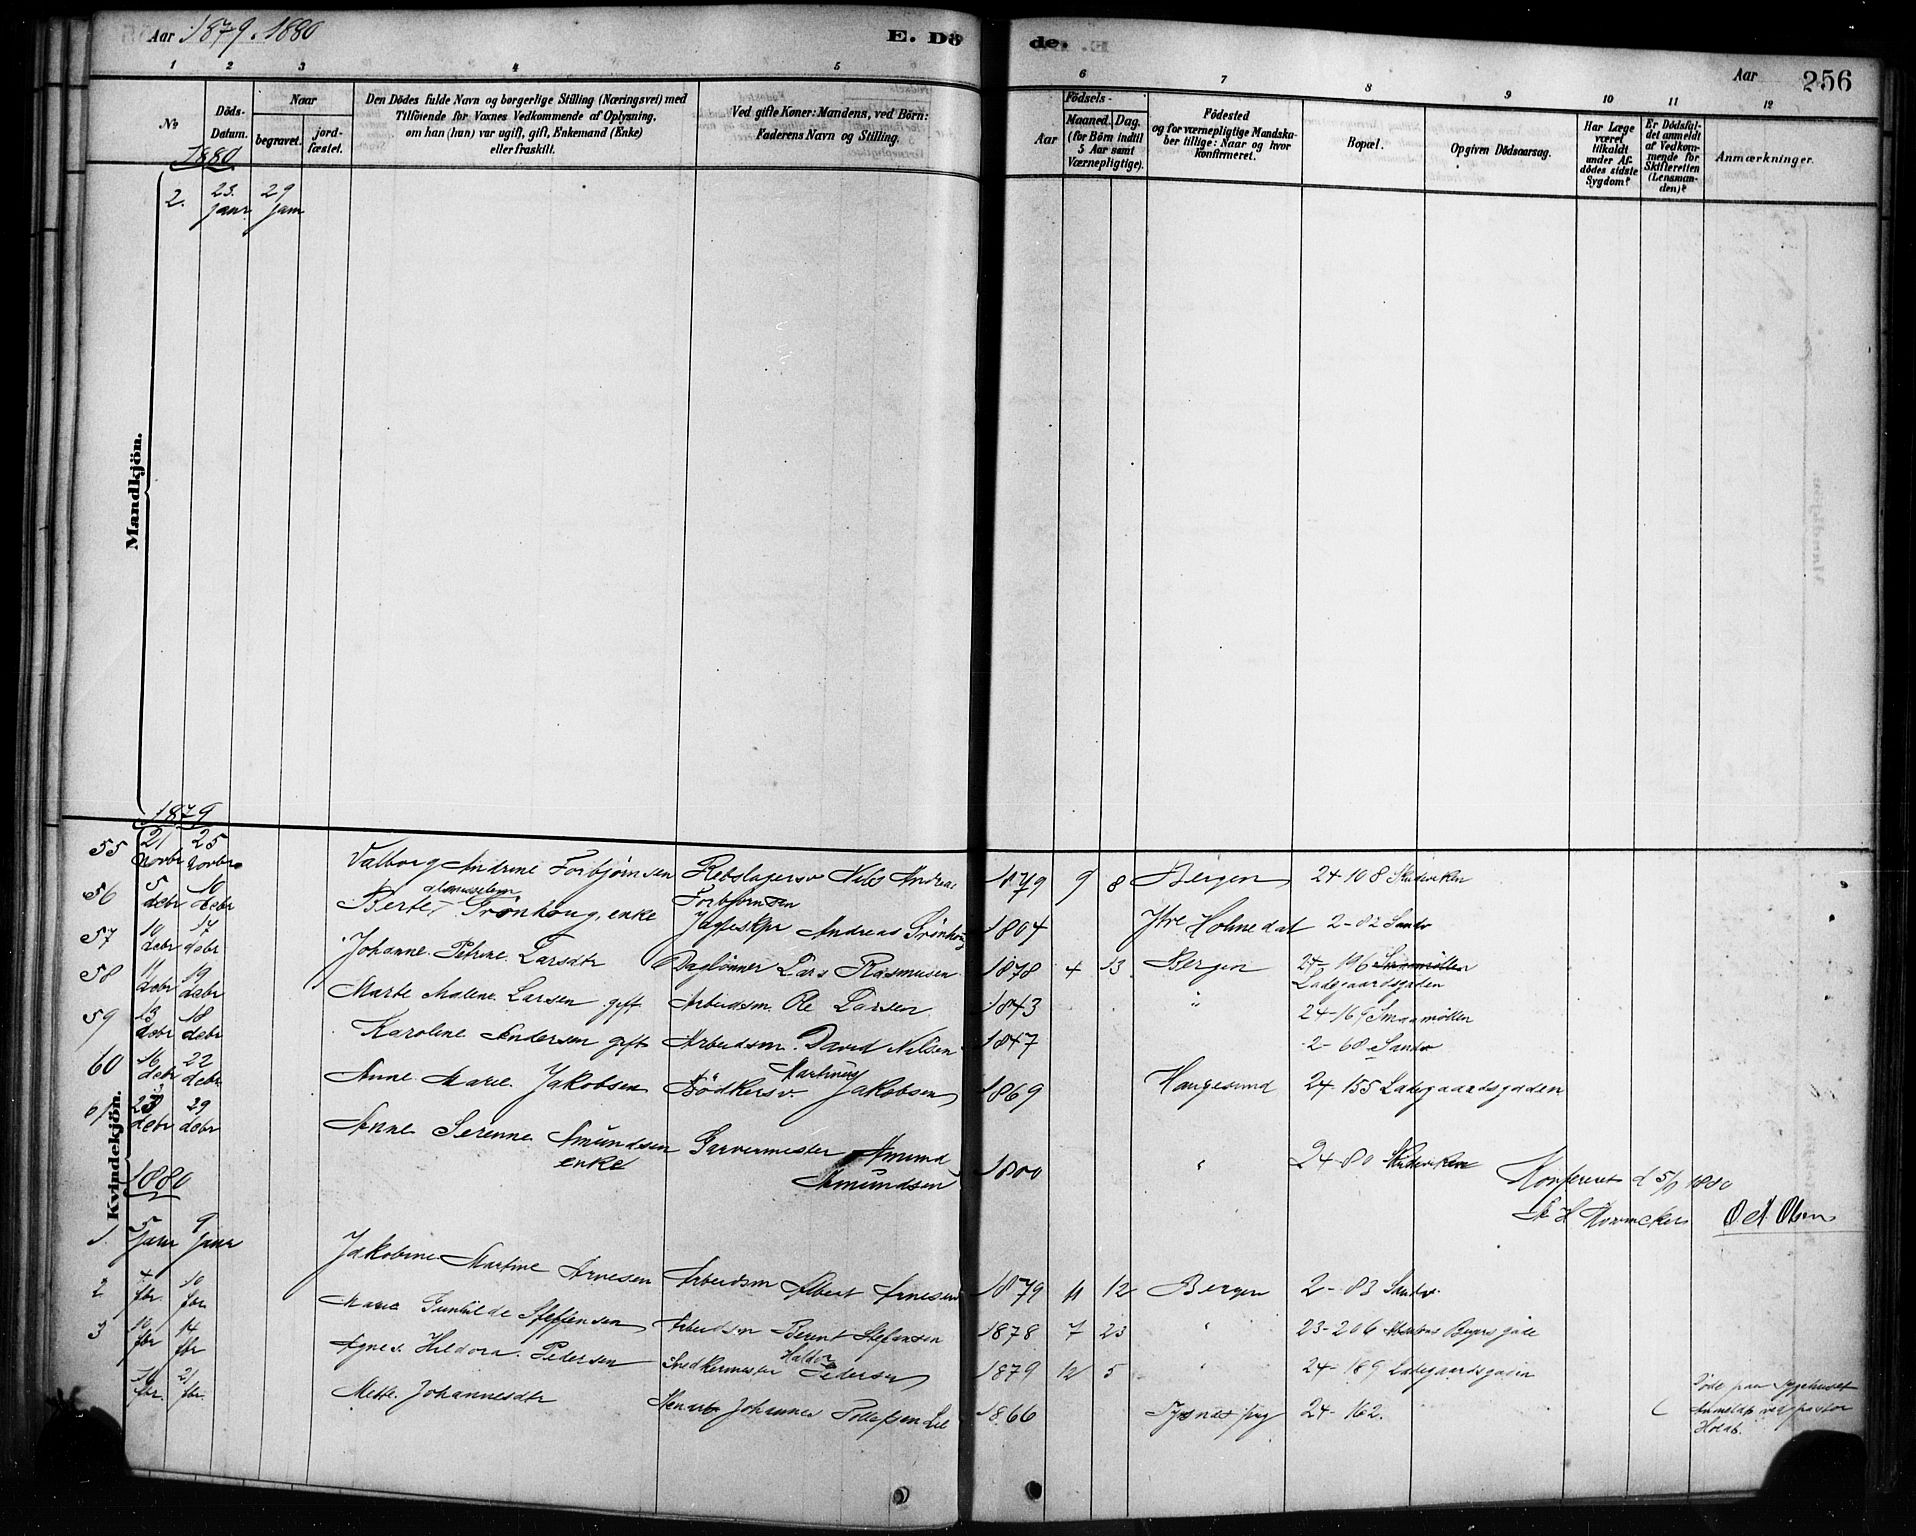 Aar 1879. 1880
E. Dö
de.
Aar
256
1 2 3 4 5 6 7 8 9 10 11 12
No
Döds-Datum.
Naar
begravet.
jord-fæstet.
Den Dödes fulde Navn og borgerlige Stilling (Næringsvei) med
Tilföiende for Voxnes Vedkommende af Oplysning,
om han (hun) var ugift, gift, Enkemand (Enke)
eller fraskilt.
Ved gifte Koner: Mandens, ved Börn:
Faderens Navn og Stilling.
Aar
Födsels-
Maaned. Dag.
(for Börn indtil
5 Aar samt
Værnepligtige).
Födested
og for værnepligtige Mandska-
ber tillige: Naar og hvor
konfirmeret.
Bopæl.
Opgiven Dödsaarsag.
Har Læge
været
tilkaldt
under Af-
dödes sidste
Sygdom?
Er Dödsfal-
det anmeldt
af Vedkom-
mende for
Skifteretten
(Lensman-
den)?
Anmærkninger.
1880
2. 23. janr 29 jan
Mandkjön.
1879
Kvindekjön.
55 21 novbr 25 novbr Valborg Andrine Torbjørnsen Rebslagersv Nils Andreas Torbjørnsen 1879 9 8 Bergen 24-108 Skudeviken
56 5 debr 10 debr Berte Grönhoug, enke Jagteskpr Andreas Grönhoug 1804 Ytre Holmedal 2-82 Sandv
57 10 debr 17 debr Johanne Petrine Larsdtr Daglönner Lars Rasmusen 1878 4 13 Bergen 24-196 Smaamøllen Ladegaardsgaden
58 11 debr 19 debr Marte Malene Larsen gift Arbeidsm. Ole Larsen 1843 " 24-169 Smaamøllen
59 13 debr 18 debr Karoline Andersen gift Arbeidsm. David Nilsen 1847 2-68 Sandv
60 16 debr 22 debr Anne Marie Jakobsen Bödkersv. Martinus Jakobsen 1869 Haugesund 24-155 Ladegaardsgaden
61 23 debr 29 debr Anne Serenne Amundsen enke Garvermester Amund Amundsen 1800 " 24-80 Skudeviken
Konfereret d 5/1 1880
O A Olsen
1880
1 5 janr 9 janr Jakobine Martine Arnesen Arbeidsm Albert Arnesen 1879 11 12 Bergen 2-83 Sandv.
2 4 fbr. 10 fbr. Marie Gunhilde Steffensen Arbeidsm Berent Stefansen 1878 7 23 " 23-206 Absalons Beyers gade
3 10 fbr 14 fbr Agnes Hildora Pedersen Snedkermester Haldor Pedersen 1879 12 5 " 24-189 Ladegaardsgaden
16 fbr. 21 fbr. Mette Johannesdtr Johannes Tollefsen 1866 Tysnes 24-162.
Døde paa Sygehuset
Anmeldt ved pastor